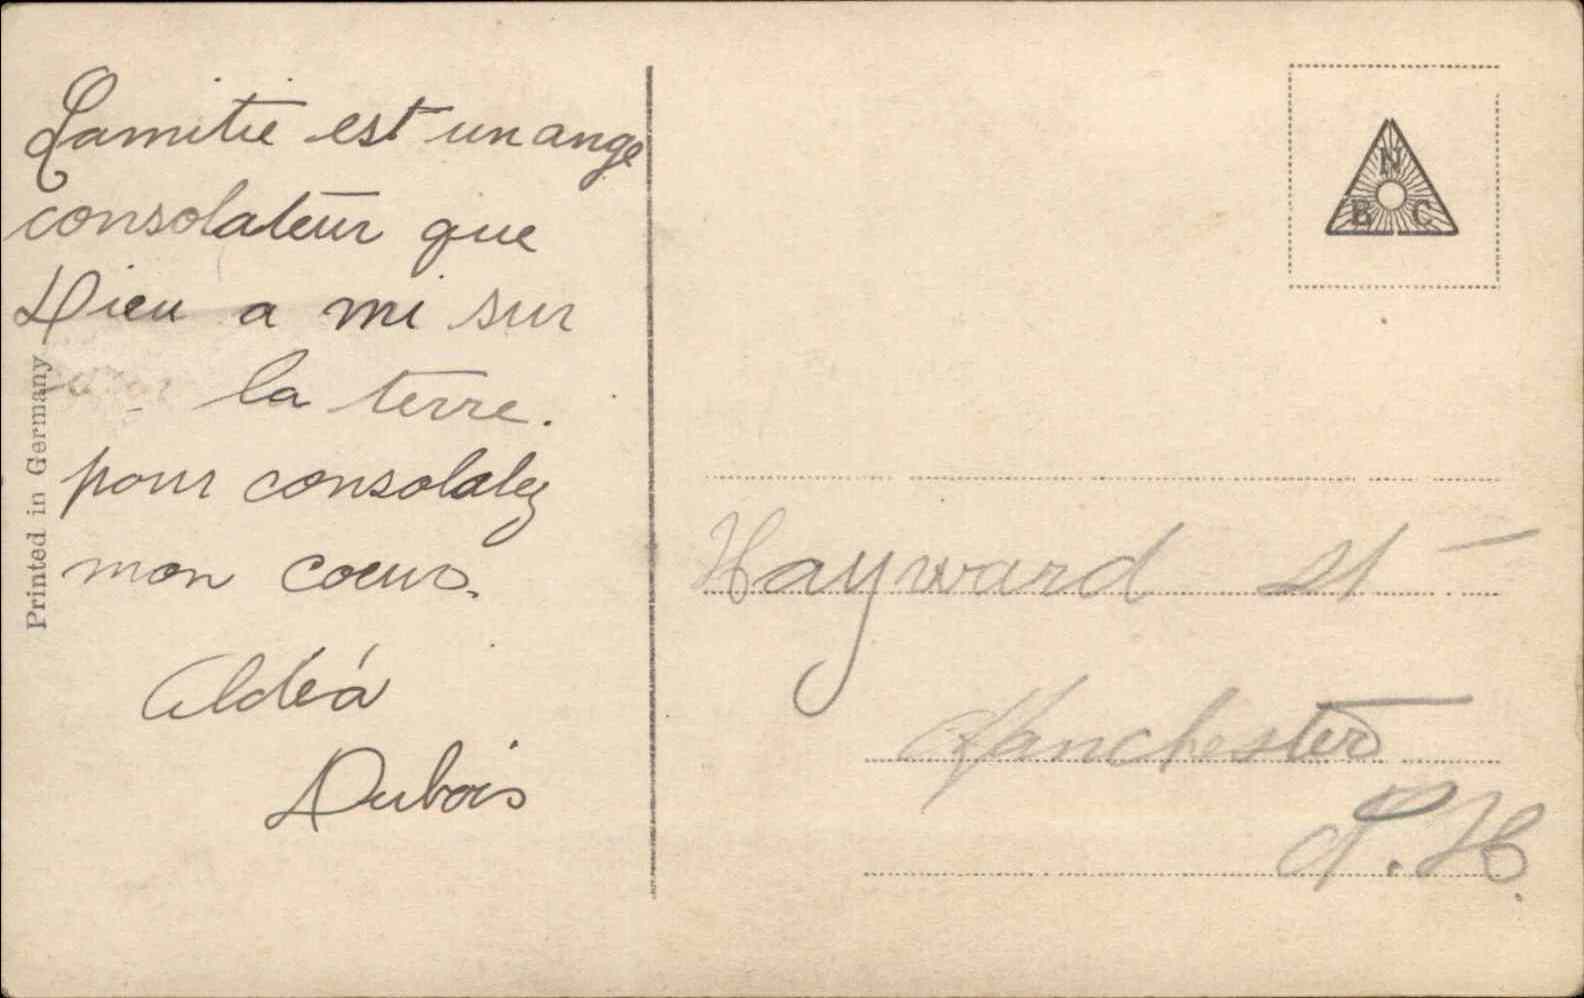 Lamitié est un ange
consolateur que
Dieu a mi sur
la terre.
pour consolatez
mon coeur.
Aldéa
Dubois
Printed in Germany
N
B C
Hayward St
Manchester
N. H.